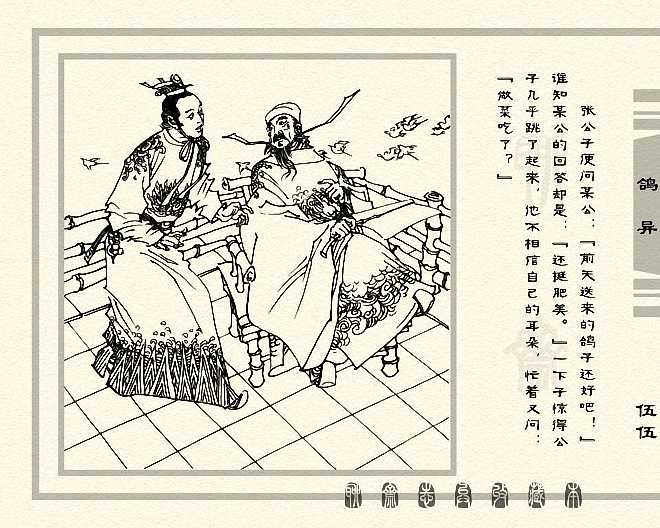 张公子便问某公：「前天送来的鸽子还好吧！」
谁知某公的回答却是：「还挺肥美。」一下子惊得公
子几乎跳了起来，他不相信自己的耳朵，忙着又问：
「做菜吃了？」
鸽异
伍伍
聊斋志异收藏本